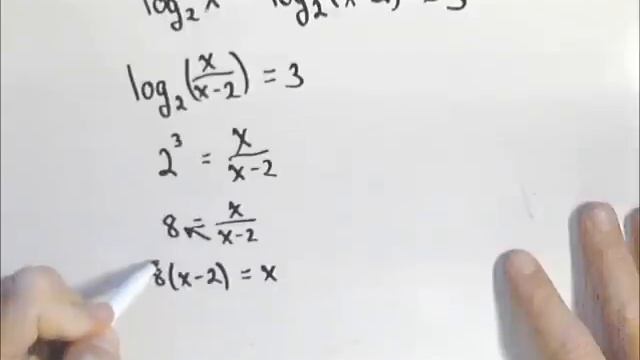 log₂x log₂(x-2) = 3
log₂(x/(x-2)) = 3
2³ = x/(x-2)
8 = x/(x-2)
8(x-2) = x